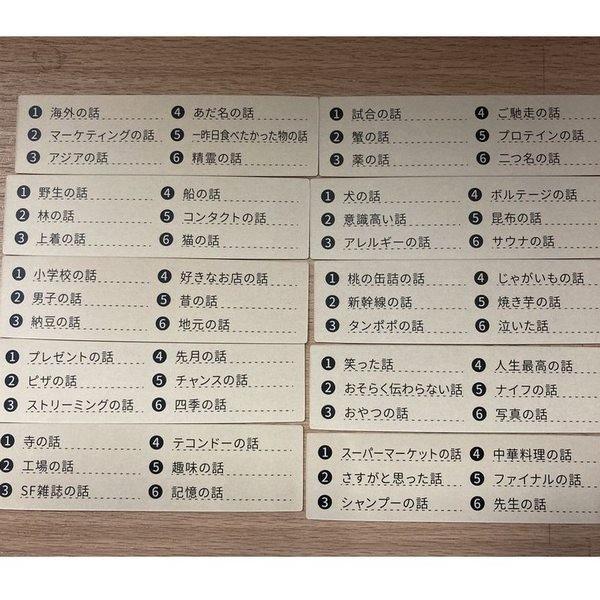 ❶ 海外の話 ❹ あだ名の話
❷ マーケティングの話 ❺ 一昨日食べたかった物の話
❸ アジアの話 ❻ 精霊の話
❶ 試合の話 ❹ ご馳走の話
❷ 蟹の話 ❺ プロテインの話
❸ 薬の話 ❻ 二つ名の話
❶ 野生の話 ❹ 船の話
❷ 林の話 ❺ コンタクトの話
❸ 上着の話 ❻ 猫の話
❶ 犬の話 ❹ ボルテージの話
❷ 意識高い話 ❺ 昆布の話
❸ アレルギーの話 ❻ サウナの話
❶ 小学校の話 ❹ 好きなお店の話
❷ 男子の話 ❺ 昔の話
❸ 納豆の話 ❻ 地元の話
❶ 桃の缶詰の話 ❹ じゃがいもの話
❷ 新幹線の話 ❺ 焼き芋の話
❸ タンポポの話 ❻ 泣いた話
❶ プレゼントの話 ❹ 先月の話
❷ ピザの話 ❺ チャンスの話
❸ ストリーミングの話 ❻ 四季の話
❶ 笑った話 ❹ 人生最高の話
❷ おそらく伝わらない話 ❺ ナイフの話
❸ おやつの話 ❻ 写真の話
❶ 寺の話 ❹ テコンドーの話
❷ 工場の話 ❺ 趣味の話
❸ SF雑誌の話 ❻ 記憶の話
❶ スーパーマーケットの話 ❹ 中華料理の話
❷ さすがと思った話 ❺ ファイナルの話
❸ シャンプーの話 ❻ 先生の話